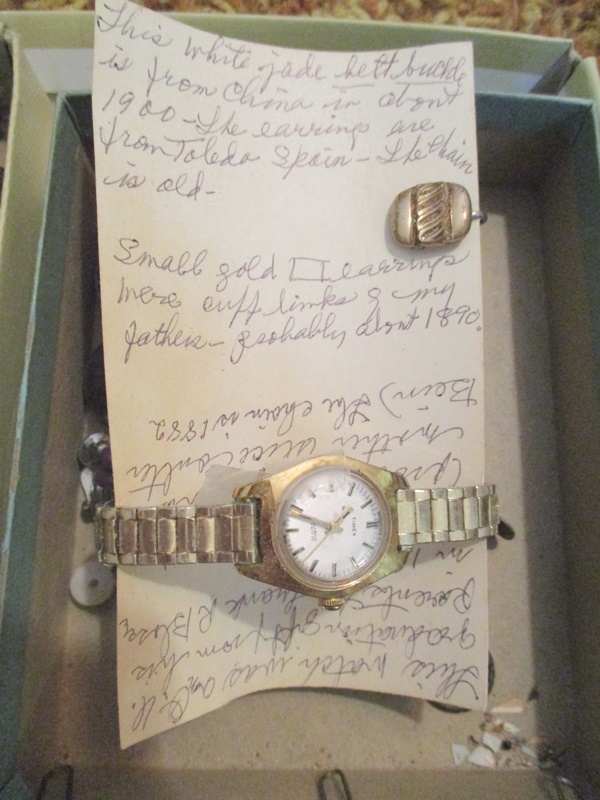 This white jade belt buckle
is from China in about
1900 - The earrings are
from Toledo Spain - The chain
is old -
Small gold earrings
were cuff links of my
fathers - probably about 1890.
This watch was
graduation gift from his
parents Frank R
in 1
mother Alice Coulter
Bein) The chain is 1882
TIMEX